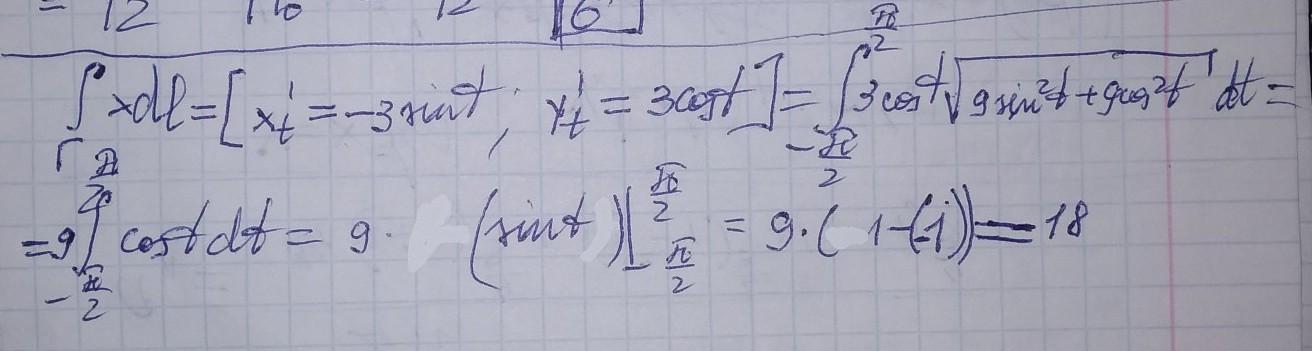 = 12 16 12 6
∫_Γ xdl = [x'_t = -3sint; y'_t = 3cost] = ∫_{-π/2}^{π/2} 3cost √(9sin²t + 9cos²t) dt =
= 9 ∫_{-π/2}^{π/2} cost dt = 9 · (sint)|_{-π/2}^{π/2} = 9 · (1-(-1)) = 18